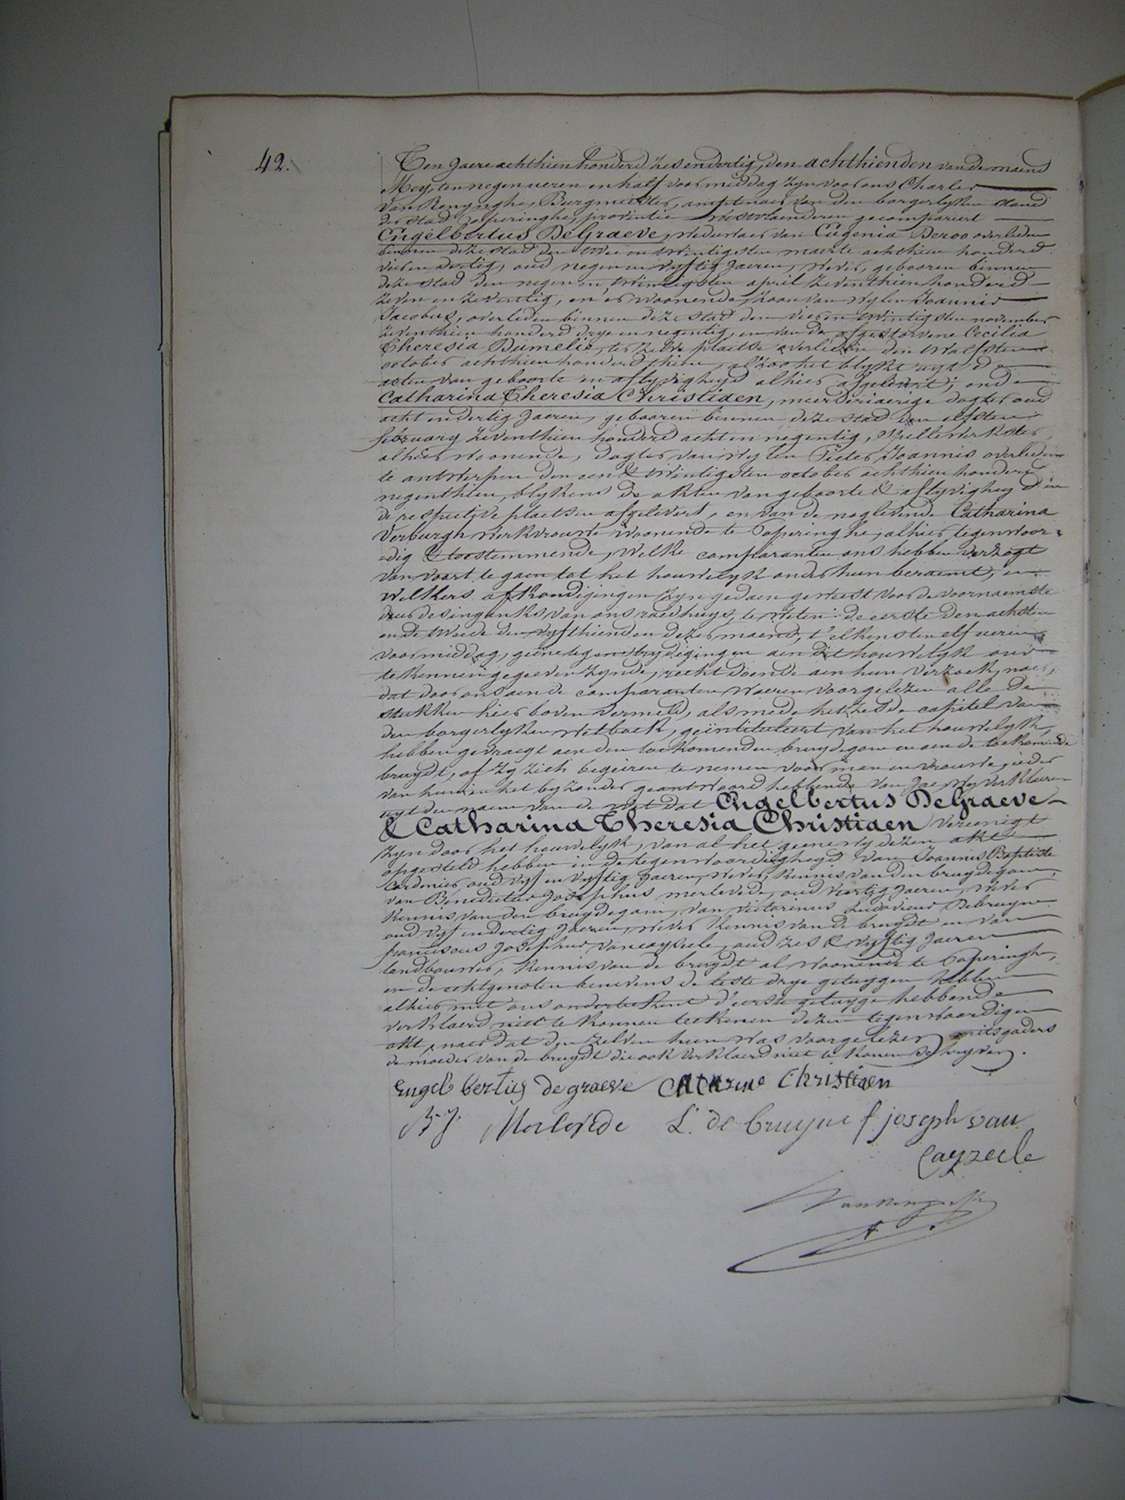 42.
Ten Jaere achthien honderd zes en dertig, den achthienden van de maend
Mey ten negen ueren en half voormiddag zyn voor ons Charles
Van Renynghe, Burgmeester, amptenaer van den borgerlyken stand
der stad Poperinghe, provintie Westvlaenderen gecompareert
Engelbertus De Graeve, Weduwaer van Eugenia Deroo overleden
binnen deze stad den twee en twintigsten maerte achthien honderd
vier en dertig, oud negen en vyftig Jaeren, wever, gebooren binnen
deze stad den negen en twintigsten april zeventhien honderd
zeven en zeventig, en er woonende, zoon van wylen Joannes
Jacobus, overleden binnen deze stad den vier en twintigsten november
zeventhien honderd drye en negentig, en van de afgestorvene Cecilia
Theresia Dumelie, ter zelve plaetse overleden den twaelfsten
october achthien honderd thien, alzoo het blykt uyt de
akten van geboorte en aflyvigheyd alhier afgelevert; ende
Catharina Theresia Christiaen, meerderjaerige dogter oud
acht en dertig Jaeren, gebooren binnen deze stad den elfsten
february zeventhien honderd acht en negentig, Spellewerkster,
alhier woonende, dogter van wylen Pieter Joannes overleden
te antwerpen den een & twintigsten october achthien honderd
negenthien, blykens de akten van geboorte & aflyvigheyd in
de respective plaetsen afgelevert, en van de nogleevende Catharina
Verburgh werkvrouwe woonende te Poperinghe, alhier tegenwoor-
dig & toestemmende, Welke comparanten ons hebben verzogt
van voort te gaen tot het houwelyk onder hun beraemt, en
welkers afkondigingen zyn gedaen geweest voor de voornaemste
deur des ingancks van ons raedhuys, te weten: de eerste den achsten
en de tweede den vyfthienden dezer maend, t'elkens ten elf ueren
voormiddag, geene tegenstrydigingen aen dit houwelyk ons
te kennen gegeeven zynde, recht doende aen hun verzoek, naer
dat door ons aen de comparanten waeren voorgelezen alle de
stukken hier boven vermeld, als mede het zesde capitel van
den borgerlyken wetboek, geïntituleert van het houwelyk,
hebben gevraegt aen den toekomenden bruydegom en aen de toekomende
bruydt, of zy zich begeiren te nemen voor man en vrouwe, ieder
van hun en het byzonder geantwoord hebbende van Jae, wy verklaeren
uyt den naem van de wet dat Engelbertus De Graeve
& Catharina Theresia Christiaen vereenigt
zyn door het houwelyk, van al het geene wy dezen akt
opgesteld hebben in de tegenwoordigheyd van Joannes Baptiste
Cordonier, oud vyf en vyftig Jaeren, wever, kennis van den bruydegom,
van Benedictus Josephus merlevede, oud veertig Jaeren, wever
kennis van den bruydegom, van victorinus Ludovicus Debruyne
oud vyf en dertig Jaeren, wever kennis van de bruydt en van
franciscus Josephus vancayzeele, oud zes & vyftig Jaeren
landbouwer, kennis van de bruydt al woonende te Poperinghe,
en de echtgenoten benevens de leste drye getuygen hebben
alhier met ons onderteekent d'eerste getuyge hebbende
verklaerd niet te konnen teekenen dezen tegenwoordigen
akt, naer dat den zelven hun was voorgelezen mitsgaders
de moeder van de bruydt die ook verklaerd niet te konnen schryven.
Engelbertus de graeve Catarine Christiaen
B. J. Merlevede L. de bruyne f joseph van
Cayzeele
Van Renynghe